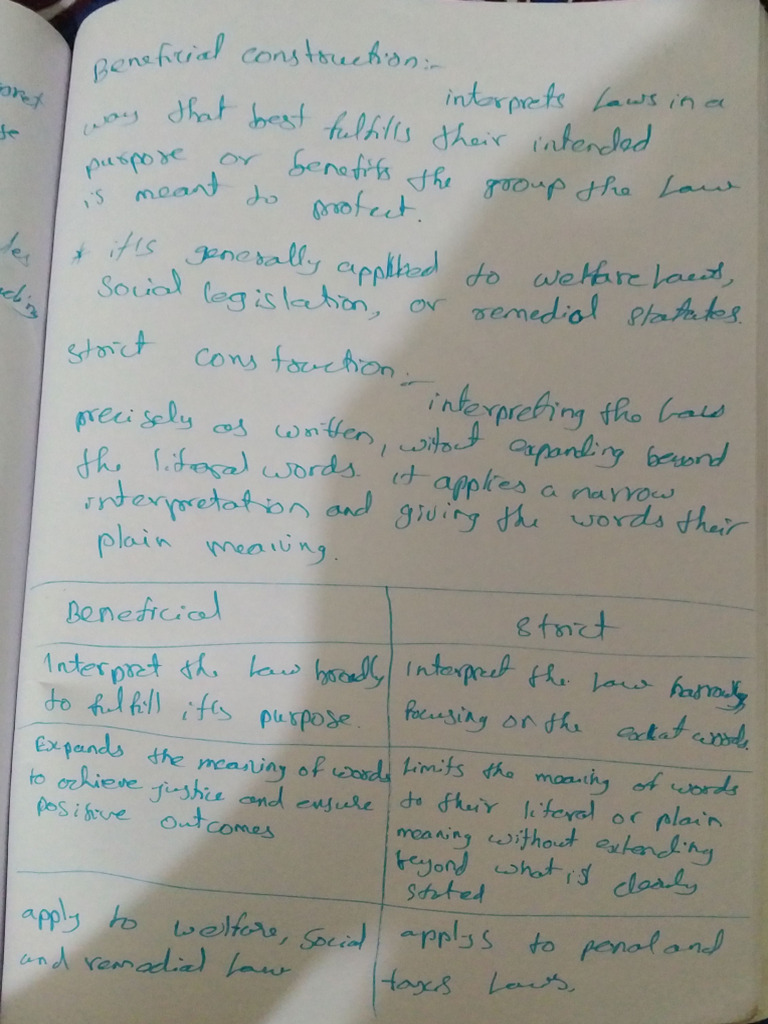 oret
se
les
Beneficial construction:-
interprets laws in a
way that best fulfills their intended
purpose or benefits the group the law
is meant to protect.
* it's generally applied to welfare laws,
social legislation, or remedial statutes.
strict construction:-
interpreting the law
precisely as written, witout expanding beyond
the literal words. it applies a narrow
interpretation and giving the words their
plain meaning.
Beneficial
Strict
Interpret the law broadly
to fulfill it's purpose.
interpret the law narrowly
focusing on the exact words.
Expands the meaning of words
to achieve justice and ensure
positive outcomes
Limits the meaning of words
to their literal or plain
meaning without extending
beyond what is clearly
stated
apply to welfare, social
and remedial law
applys to penal and
taxes laws.